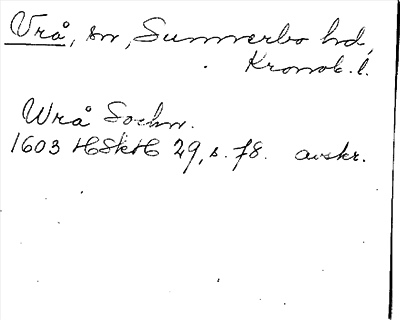 Vrå, sn, Sunnerbo hd,
Kronob. l.
Wrå Sochn.
1603 HSkH 29, s. 78. avskr.